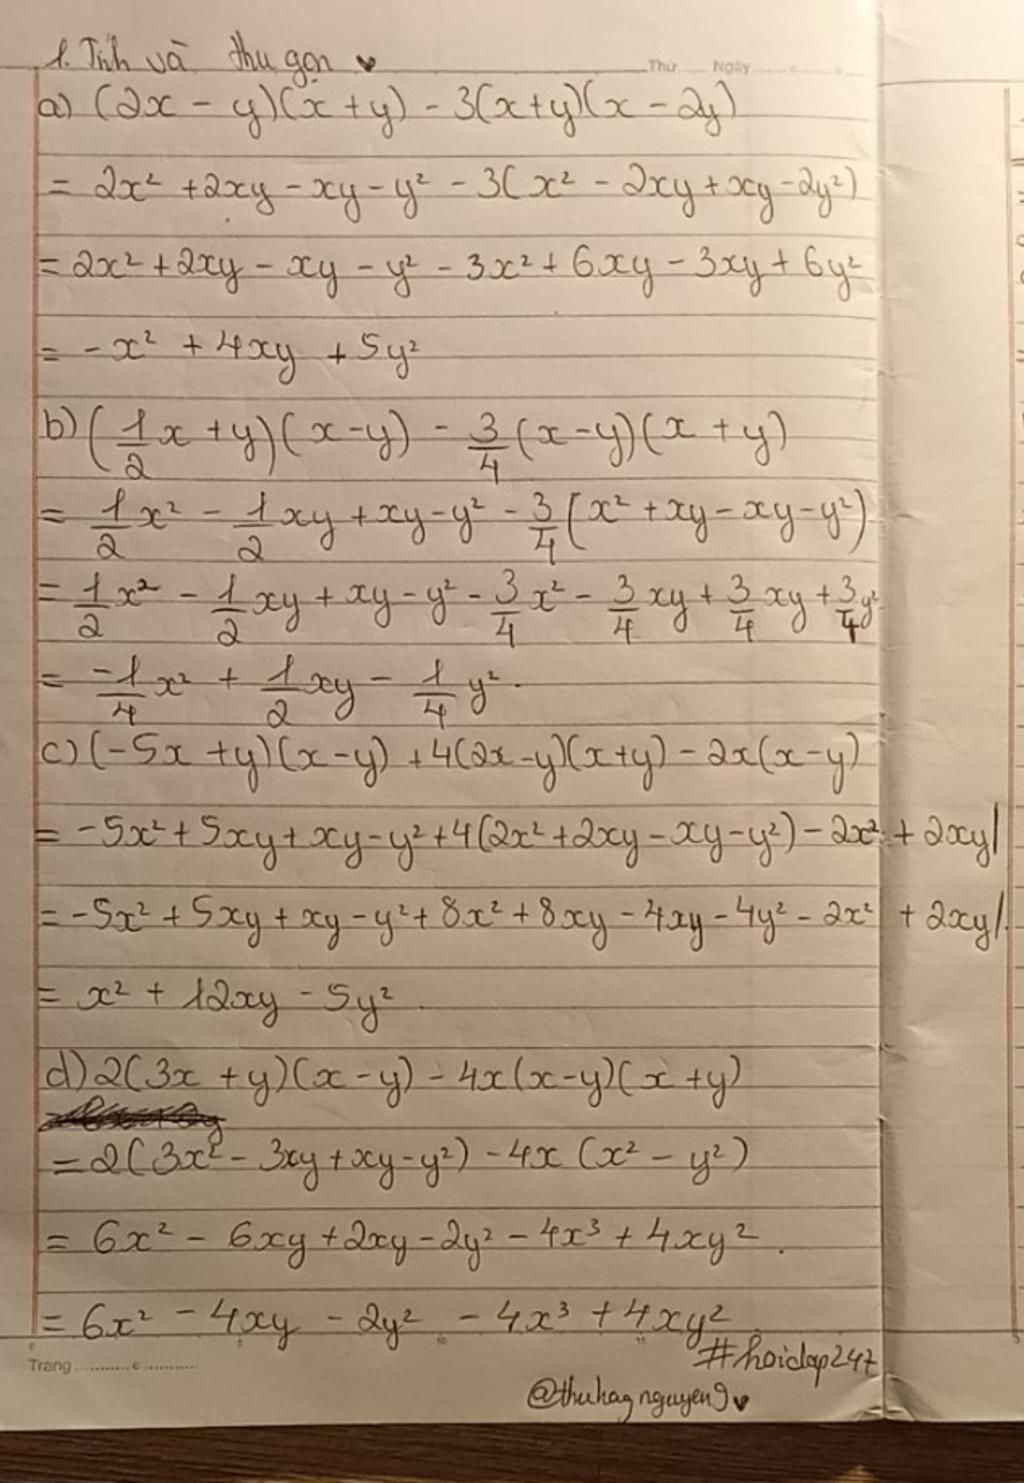 1. Tính và thu gọn ♥
Thứ Ngày
a) (2x - y)(x + y) - 3(x+y)(x - 2y)
= 2x² + 2xy - xy - y² - 3(x² - 2xy + xy - 2y²)
= 2x² + 2xy - xy - y² - 3x² + 6xy - 3xy + 6y²
= -x² + 4xy + 5y²
b) (1/2x + y)(x - y) - 3/4(x - y)(x + y)
= 1/2x² - 1/2xy + xy - y² - 3/4(x² + xy - xy - y²)
= 1/2x² - 1/2xy + xy - y² - 3/4x² - 3/4xy + 3/4xy + 3/4y²
= -1/4x² + 1/2xy - 1/4y².
c) (-5x + y)(x - y) + 4(2x - y)(x + y) - 2x(x - y)
= -5x² + 5xy + xy - y² + 4(2x² + 2xy - xy - y²) - 2x² + 2xy
= -5x² + 5xy + xy - y² + 8x² + 8xy - 4xy - 4y² - 2x² + 2xy
= x² + 12xy - 5y².
d) 2(3x + y)(x - y) - 4x(x - y)(x + y)
= 2(3x² - 3xy + xy - y²) - 4x(x² - y²)
= 6x² - 6xy + 2xy - 2y² - 4x³ + 4xy².
= 6x² - 4xy - 2y² - 4x³ + 4xy²
Trang
#hoidap247
@thuhagnguyen9♥